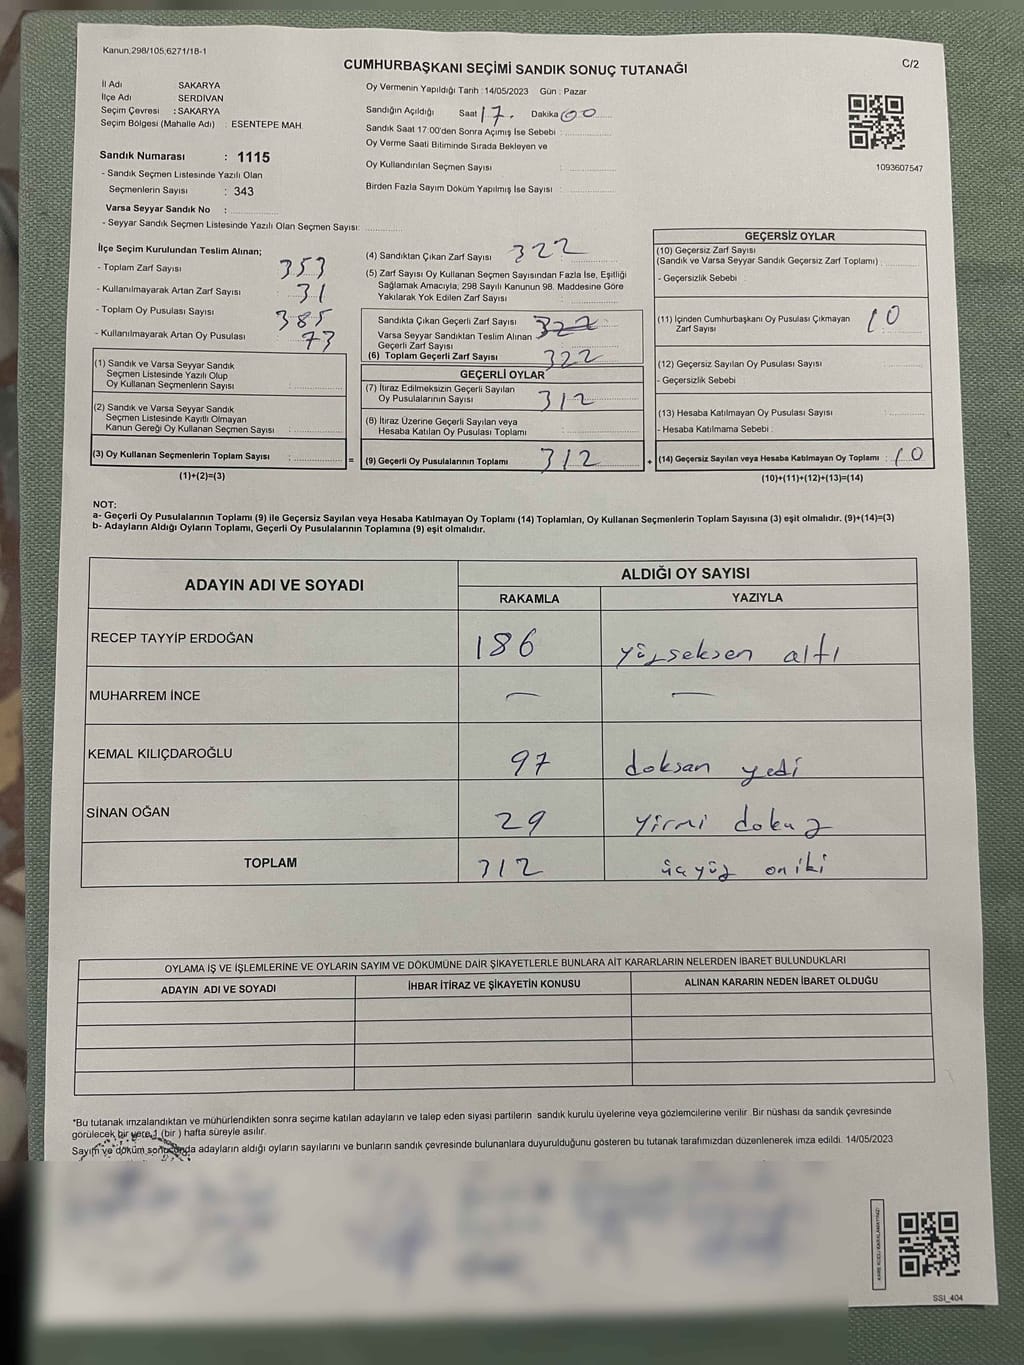 Kanun,298/105,6271/18-1
C/2
CUMHURBAŞKANI SEÇİMİ SANDIK SONUÇ TUTANAĞI
İl Adı SAKARYA
İlçe Adı SERDİVAN
Seçim Çevresi : SAKARYA
Seçim Bölgesi (Mahalle Adı) : ESENTEPE MAH.
Sandık Numarası : 1115
- Sandık Seçmen Listesinde Yazılı Olan
Seçmenlerin Sayısı : 343
Varsa Seyyar Sandık No :
- Seyyar Sandık Seçmen Listesinde Yazılı Olan Seçmen Sayısı:
Oy Vermenin Yapıldığı Tarih :14/05/2023 Gün : Pazar
Sandığın Açıldığı Saat 17. Dakika 00
Sandık Saat 17.00'den Sonra Açımış İse Sebebi :
Oy Verme Saati Bitiminde Sırada Bekleyen ve
Oy Kullandırılan Seçmen Sayısı :
Birden Fazla Sayım Döküm Yapılmış İse Sayısı :
1093607547
İlçe Seçim Kurulundan Teslim Alınan;
- Toplam Zarf Sayısı 353
- Kullanılmayarak Artan Zarf Sayısı 31
- Toplam Oy Pusulası Sayısı 385
- Kullanılmayarak Artan Oy Pusulası 73
(1) Sandık ve Varsa Seyyar Sandık
Seçmen Listesinde Yazılı Olup
Oy Kullanan Seçmenlerin Sayısı :
(2) Sandık ve Varsa Seyyar Sandık
Seçmen Listesinde Kayıtlı Olmayan
Kanun Gereği Oy Kullanan Seçmen Sayısı :
(3) Oy Kullanan Seçmenlerin Toplam Sayısı :
(1)+(2)=(3)
=
(4) Sandıktan Çıkan Zarf Sayısı : 322
(5) Zarf Sayısı Oy Kullanan Seçmen Sayısından Fazla İse, Eşitliği
Sağlamak Amacıyla; 298 Sayılı Kanunun 98. Maddesine Göre
Yakılarak Yok Edilen Zarf Sayısı :
Sandıkta Çıkan Geçerli Zarf Sayısı : 322
Varsa Seyyar Sandıktan Teslim Alınan
Geçerli Zarf Sayısı
(6) Toplam Geçerli Zarf Sayısı 322
GEÇERLİ OYLAR
(7) İtiraz Edilmeksizin Geçerli Sayılan
Oy Pusulalarının Sayısı : 312
(8) İtiraz Üzerine Geçerli Sayılan veya
Hesaba Katılan Oy Pusulası Toplamı :
(9) Geçerli Oy Pusulalarının Toplamı : 312
+
GEÇERSİZ OYLAR
(10) Geçersiz Zarf Sayısı
(Sandık ve Varsa Seyyar Sandık Geçersiz Zarf Toplamı) :
- Geçersizlik Sebebi :
(11) İçinden Cumhurbaşkanı Oy Pusulası Çıkmayan
Zarf Sayısı 10
(12) Geçersiz Sayılan Oy Pusulası Sayısı :
- Geçersizlik Sebebi :
(13) Hesaba Katılmayan Oy Pusulası Sayısı :
- Hesaba Katılmama Sebebi :
(14) Geçersiz Sayılan veya Hesaba Katılmayan Oy Toplamı : 10
(10)+(11)+(12)+(13)=(14)
NOT:
a- Geçerli Oy Pusulalarının Toplamı (9) ile Geçersiz Sayılan veya Hesaba Katılmayan Oy Toplamı (14) Toplamları, Oy Kullanan Seçmenlerin Toplam Sayısına (3) eşit olmalıdır. (9)+(14)=(3)
b- Adayların Aldığı Oyların Toplamı, Geçerli Oy Pusulalarının Toplamına (9) eşit olmalıdır.
ADAYIN ADI VE SOYADI ALDIĞI OY SAYISI
RAKAMLA YAZIYLA
RECEP TAYYİP ERDOĞAN 186 yüzseksen altı
MUHARREM İNCE — —
KEMAL KILIÇDAROĞLU 97 doksan yedi
SİNAN OĞAN 29 yirmi dokuz
TOPLAM 312 üçyüz oniki
OYLAMA İŞ VE İŞLEMLERİNE VE OYLARIN SAYIM VE DÖKÜMÜNE DAİR ŞİKAYETLERLE BUNLARA AİT KARARLARIN NELERDEN İBARET BULUNDUKLARI
ADAYIN ADI VE SOYADI İHBAR İTİRAZ VE ŞİKAYETİN KONUSU ALINAN KARARIN NEDEN İBARET OLDUĞU
*Bu tutanak imzalandıktan ve mühürlendikten sonra seçime katılan adayların ve talep eden siyasi partilerin sandık kurulu üyelerine veya gözlemcilerine verilir. Bir nüshası da sandık çevresinde
görülecek bir yere 1 (bir ) hafta süreyle asılır.
Sayım ve döküm sonucunda adayların aldığı oyların sayılarını ve bunların sandık çevresinde bulunanlara duyurulduğunu gösteren bu tutanak tarafımızdan düzenlenerek imza edildi. 14/05/2023
SSI_404